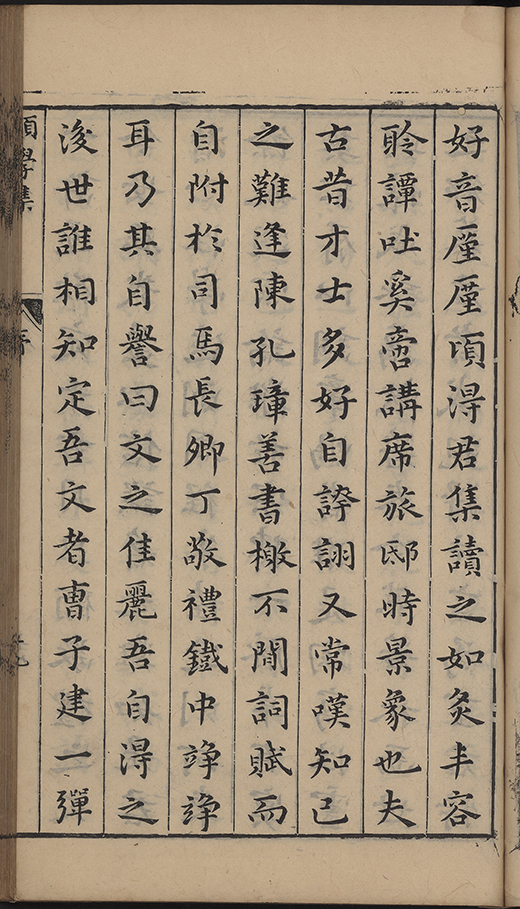 好音廑廑頃淂君集讀之如炙丰容
聆譚吐奚啻講席旅邸時景象也夫
古昔才士多好自誇詡又常嘆知己
之難逢陳孔璋善書檄不閒詞賦而
自附於司馬長卿丁敬禮鐵中錚錚
耳乃其自譽曰文之佳麗吾自淂之
後世誰相知定吾文者曹子建一彈
學集
序